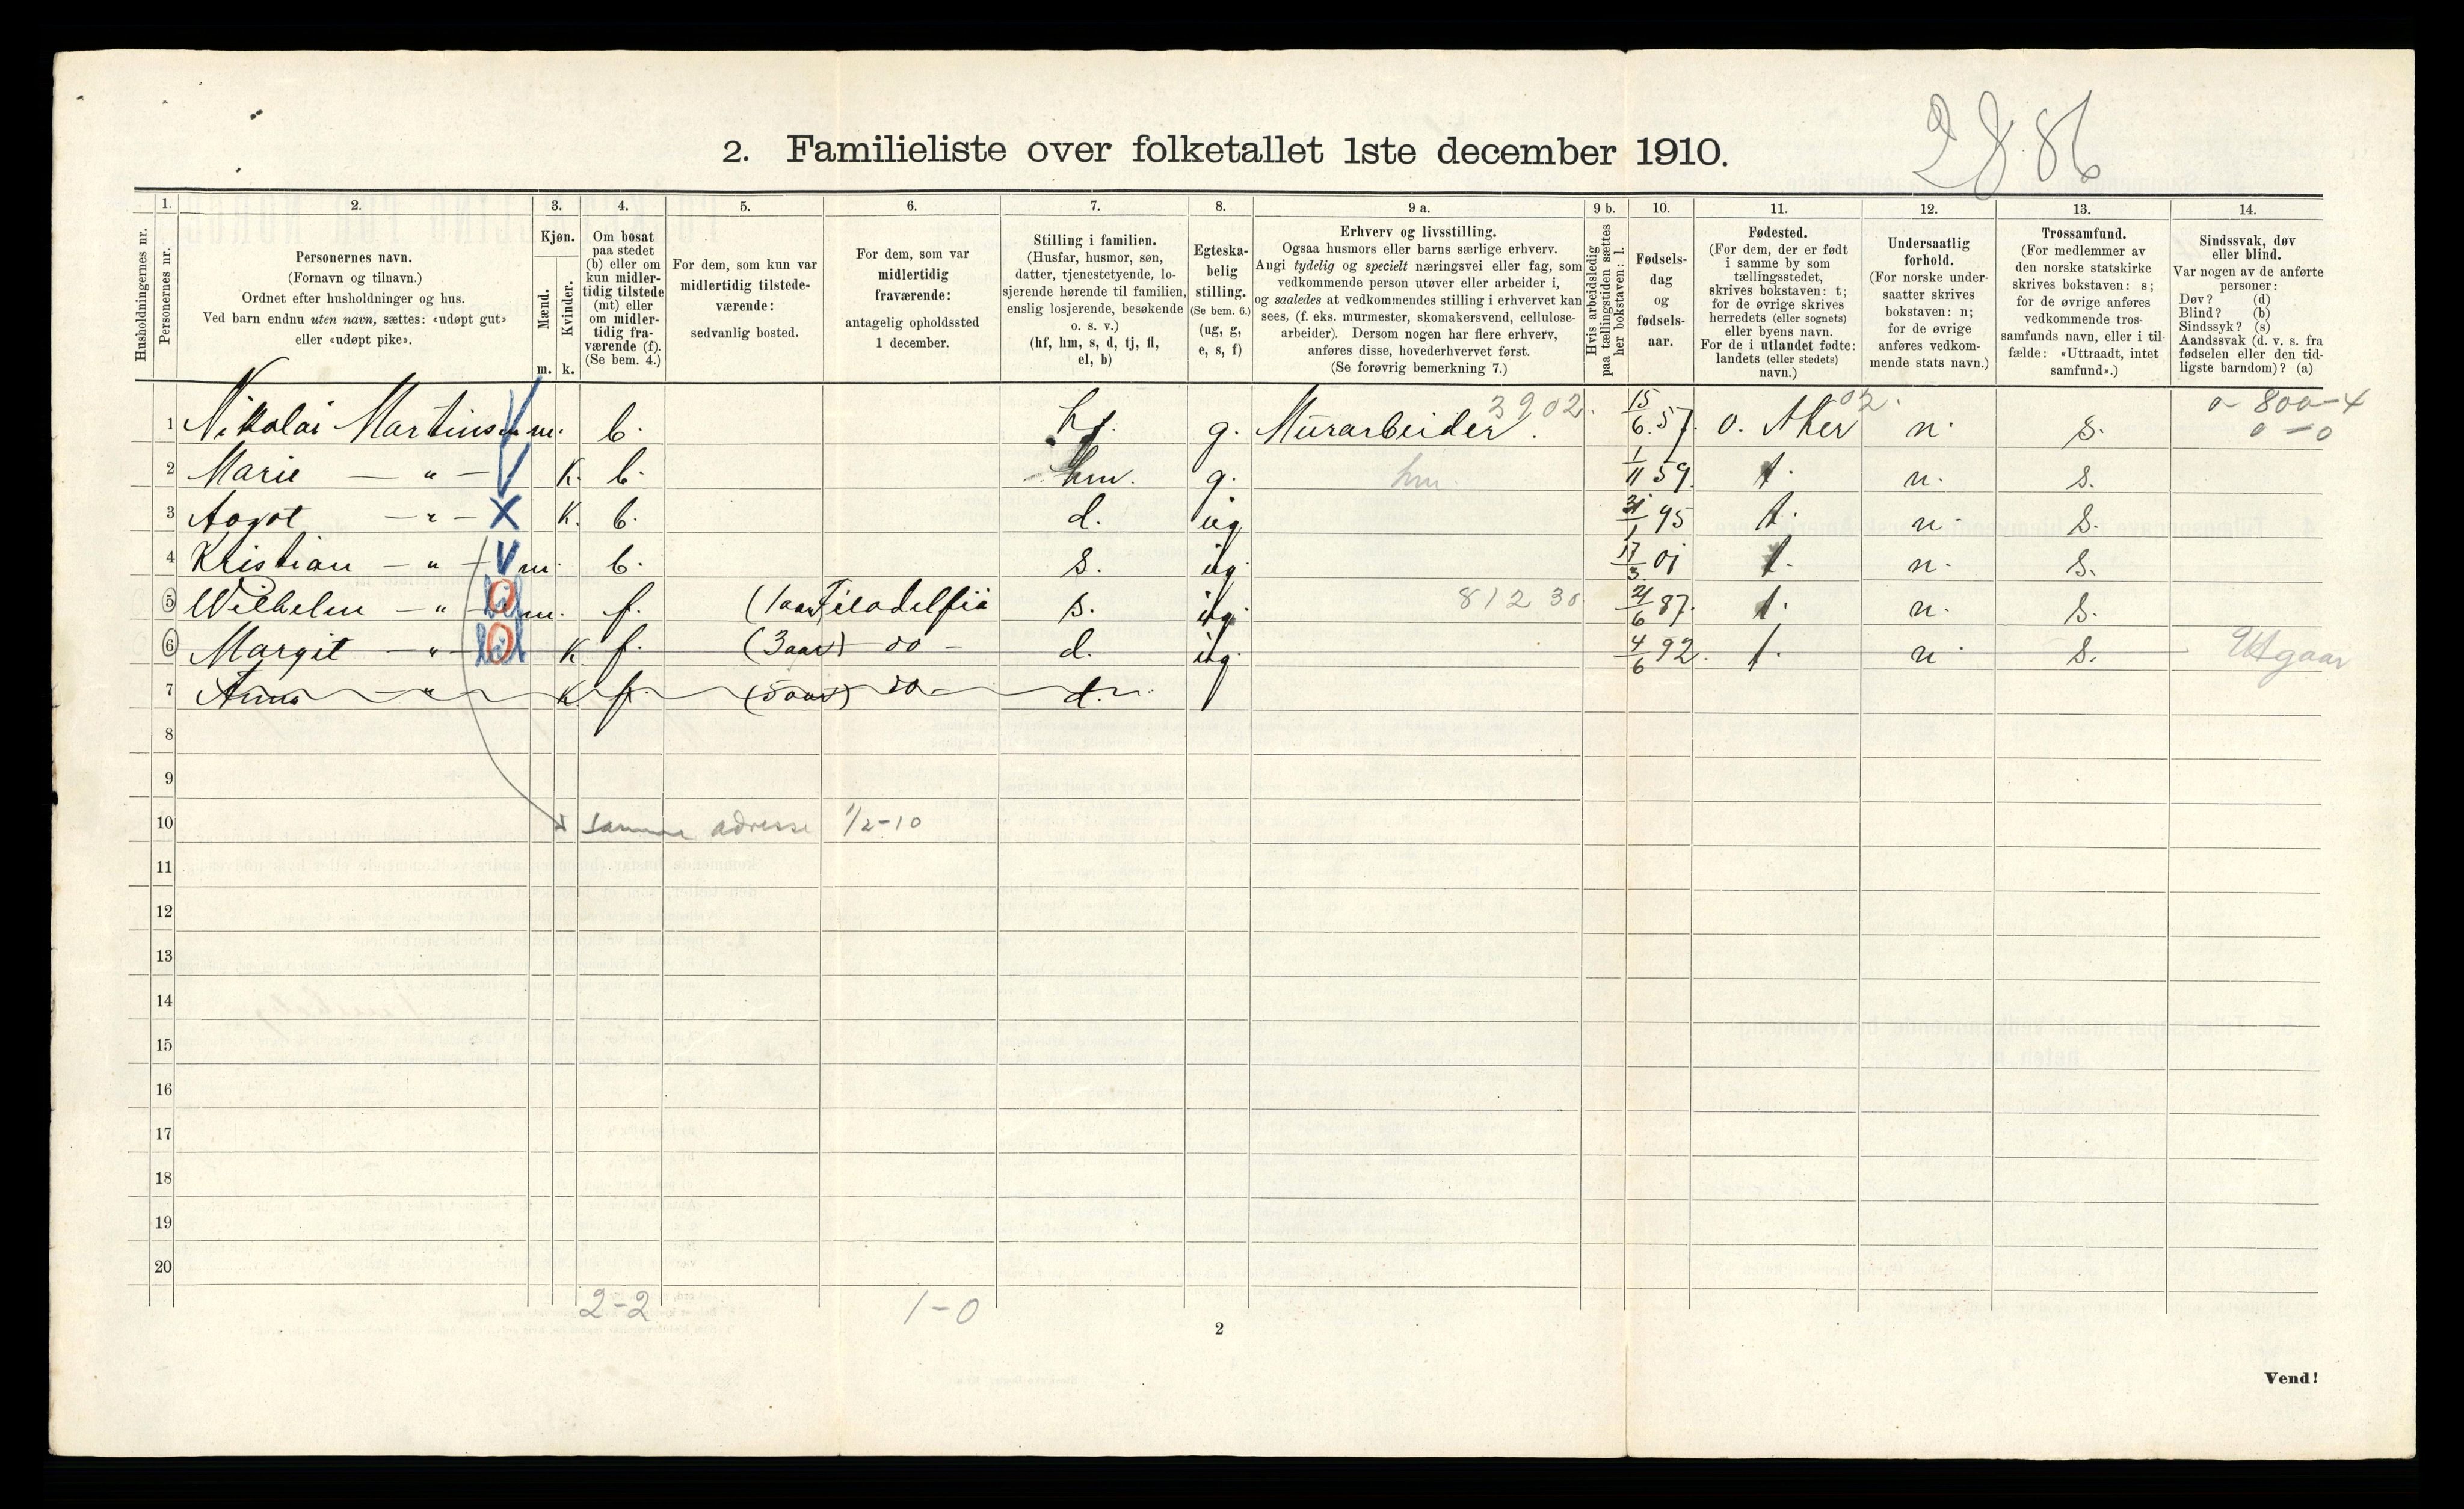 2886
2. Familieliste over folketallet 1ste december 1910.
1. 2. 3. 4. 5. 6. 7. 8. 9 a. 9 b. 10. 11. 12. 13. 14.
Husholdningernes nr.
Personernes nr.
Personernes navn.
(Fornavn og tilnavn.)
Ordnet efter husholdninger og hus.
Ved barn endnu uten navn, sættes: «udøpt gut»
eller «udøpt pike».
Kjøn.
Mænd.
Kvinder.
m. k.
Om bosat
paa stedet
(b) eller om
kun midler-
tidig tilstede
(mt) eller
om midler-
tidig fra-
værende (f).
(Se bem. 4.)
For dem, som kun var
midlertidig tilstede-
værende:
sedvanlig bosted.
For dem, som var
midlertidig
fraværende:
antagelig opholdssted
1 december.
Stilling i familien.
(Husfar, husmor, søn,
datter, tjenestetyende, lo-
sjerende hørende til familien,
enslig losjerende, besøkende
o. s. v.)
(hf, hm, s, d, tj, fl,
el, b)
Egteska-
belig
stilling.
(Se bem. 6.)
(ug, g,
e, s, f)
Erhverv og livsstilling.
Ogsaa husmors eller barns særlige erhverv.
Angi tydelig og specielt næringsvei eller fag, som
vedkommende person utøver eller arbeider i,
og saaledes at vedkommendes stilling i erhvervet kan
sees, (f. eks. murmester, skomakersvend, cellulose-
arbeider). Dersom nogen har flere erhverv,
anføres disse, hovederhvervet først.
(Se forøvrig bemerkning 7.)
Hvis arbeidsledig
paa tællingstiden sættes
her bokstaven: l.
Fødsels-
dag
og
fødsels-
aar.
Fødested.
(For dem, der er født
i samme by som
tællingsstedet,
skrives bokstaven: t;
for de øvrige skrives
herredets (eller sognets)
eller byens navn.
For de i utlandet fødte:
landets (eller stedets)
navn.)
Undersaatlig
forhold.
(For norske under-
saatter skrives
bokstaven: n;
for de øvrige
anføres vedkom-
mende stats navn.)
Trossamfund.
(For medlemmer av
den norske statskirke
skrives bokstaven: s;
for de øvrige anføres
vedkommende tros-
samfunds navn, eller i til-
fælde: «Uttraadt, intet
samfund».)
Sindssvak, døv
eller blind.
Var nogen av de anførte
personer:
Døv? (d)
Blind? (b)
Sindssyk? (s)
Aandssvak (d. v. s. fra
fødselen eller den tid-
ligste barndom)? (a)
3902. 02. 0-800-4
1 Nikolai Martinsen m. b. hf. g. Murarbeider. 15/6.57. o. Aker n. s. 0-0
2 Marie — " — k. b. hm. g. hm. 1/11 59. t. n. s.
3 Aagot — " — x k. b. d. ug 31/1 95 t. n. s.
4 Kristian — " — m. b. s. ug. 17/3 01 t. n. s.
5 Wilhelm — " — m. f. (1 aar) Filadelfia s. ug. 812 30 21/6 87. t. n. s.
6 Margit — " — k f. (3 aar) — do — d. ug. 4/6 92. t. n. s. Utgaar
7 Anna — " — k f. (5 aar) do — d.
8
9
10 samme adresse 1/2-10
11
12
13
14
15
16
17
18
19
20
2-2 1-0
2
Vend!